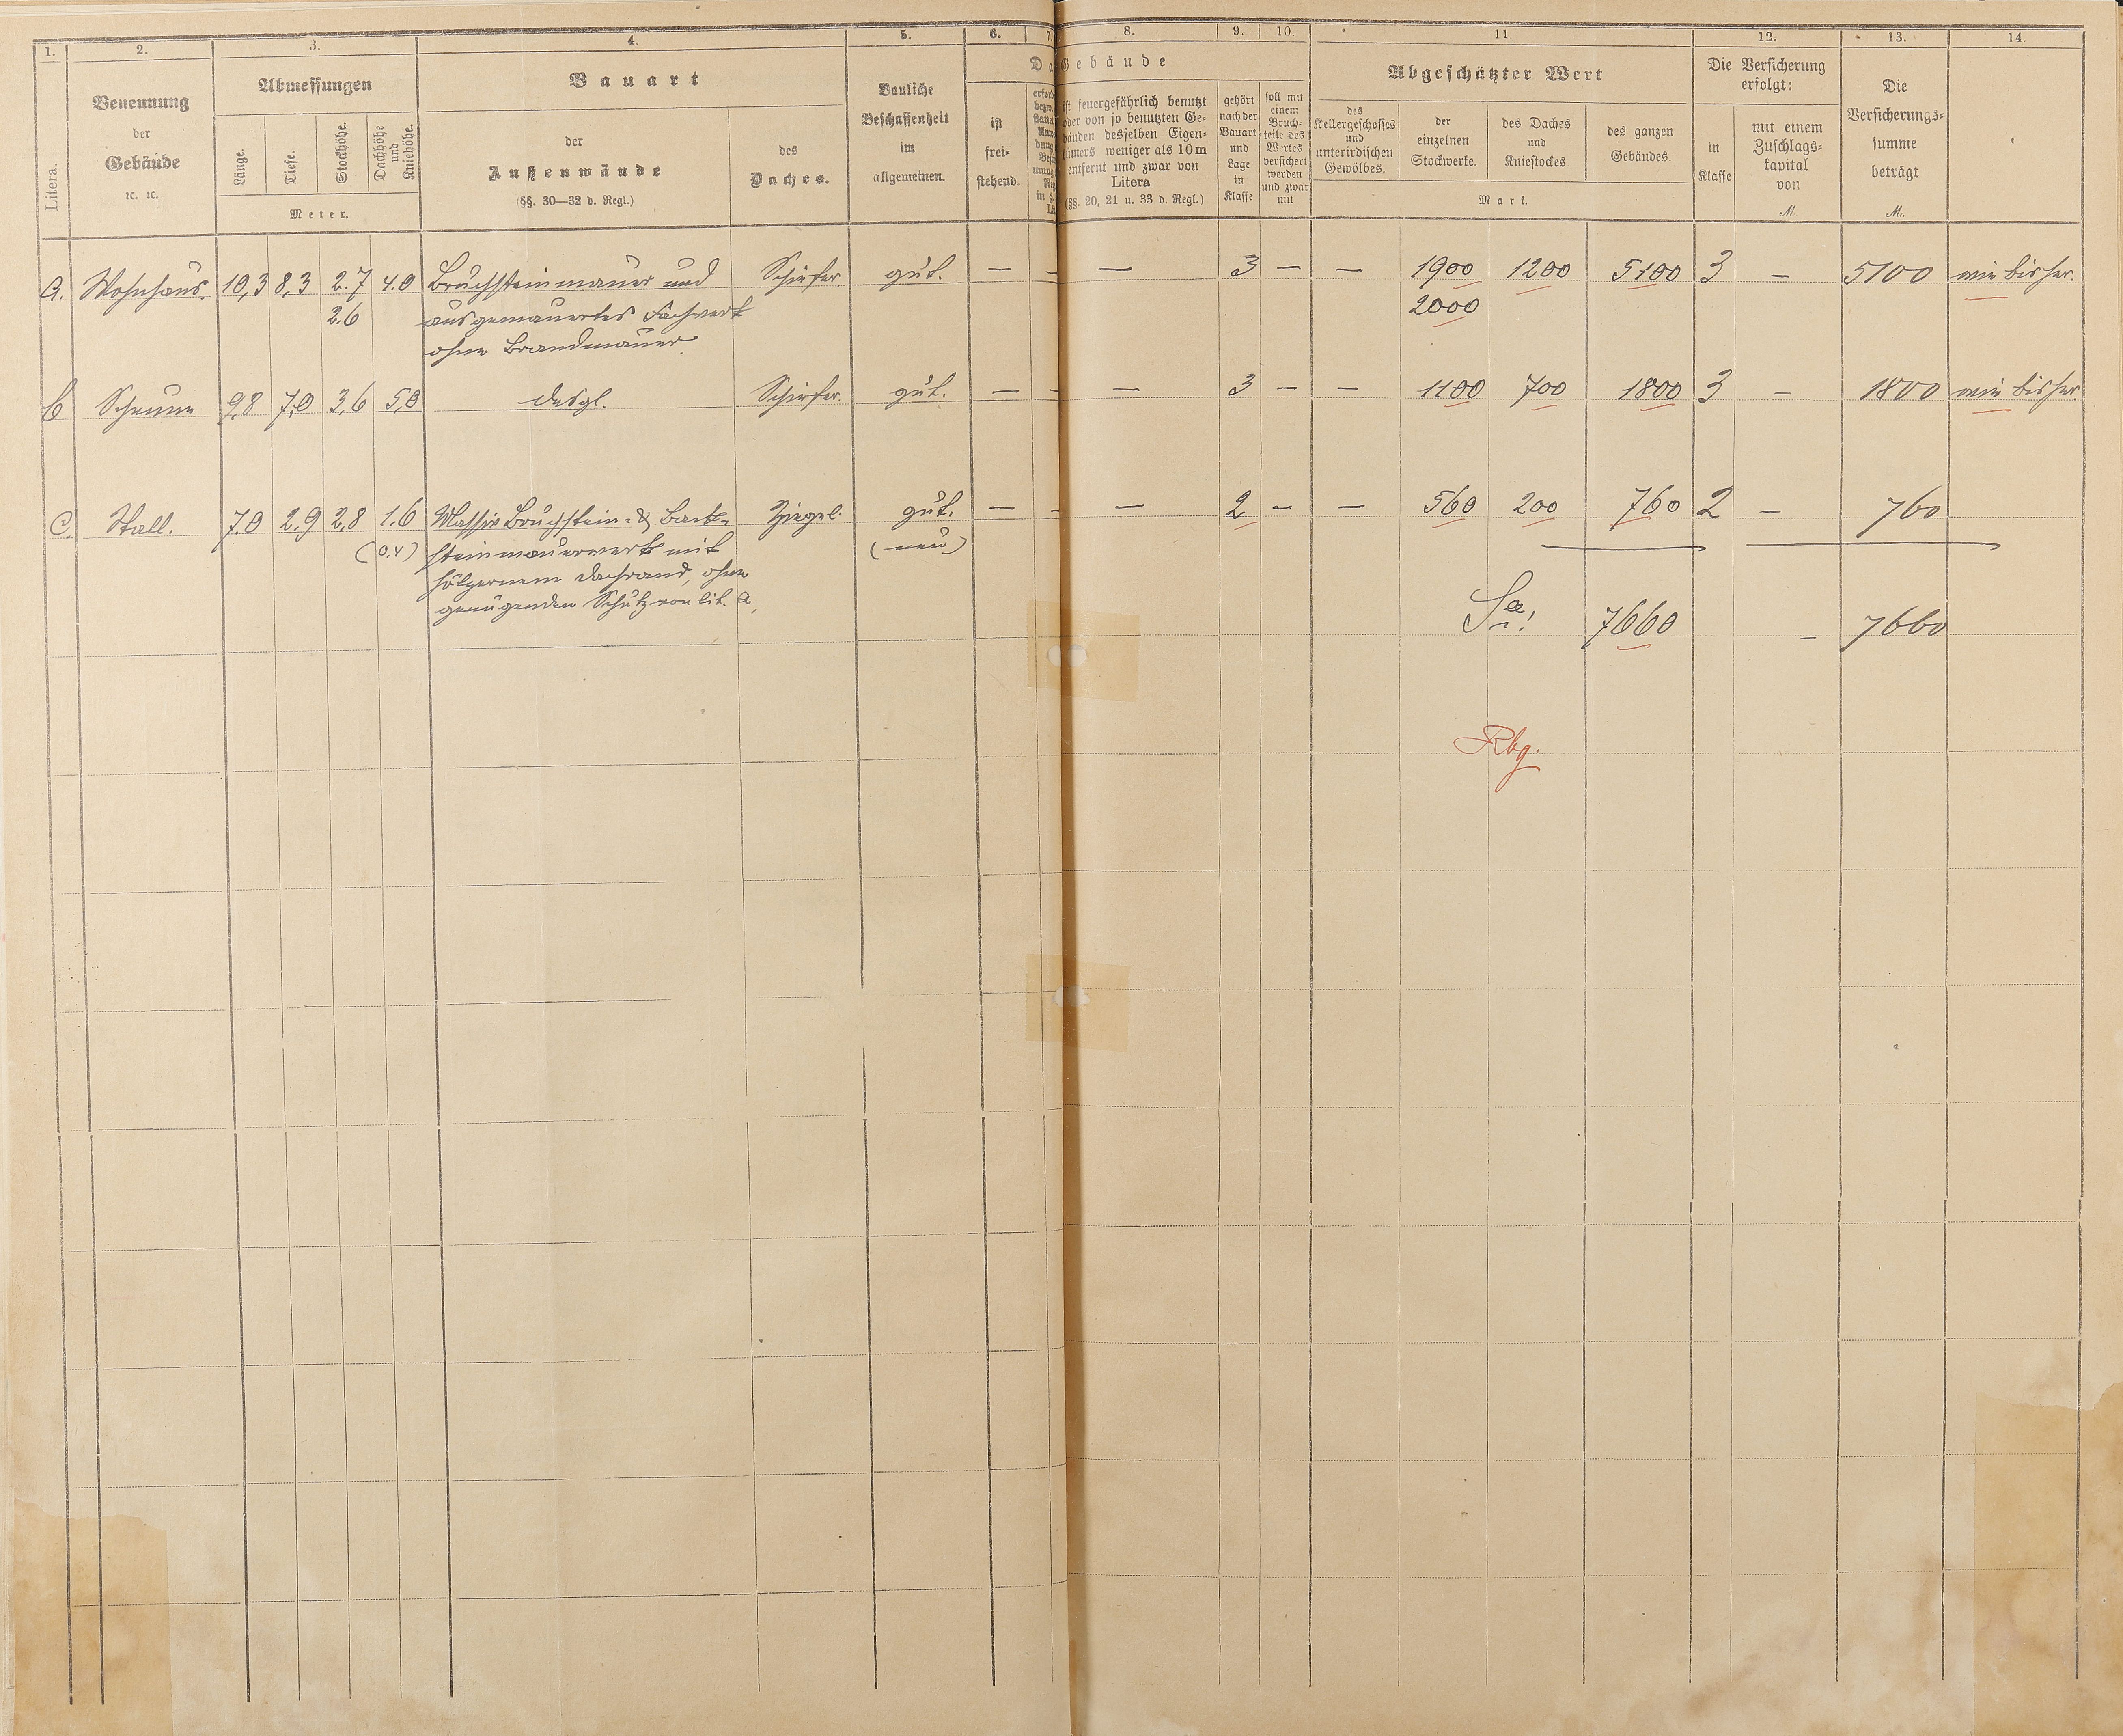 1. 2. 3. 4. 5. 6. 7. 8. 9. 10 11 12. 13. 14.
Litera.
Benennung
der
Gebäude
ꝛc. ꝛc.
Abmessungen
Länge.
Tiefe.
Stockhöhe.
Dachhöhe
und
Kniehöhe.
Meter.
Bauart
der
Außenwände
(§§. 30—32 d. Regl.)
des
Daches.
Bauliche
Beschaffenheit
im
allgemeinen.
Gebäude
ist
frei-
stehend.
ist feuergefährlich benutzt
oder von so benutzten Ge-
bäuden desselben Eigen-
tümers weniger als 10 m
entfernt und zwar von
Litera
(§§. 20, 21 u. 33 d. Regl.)
gehört
nach der
Bauart
und
Lage
in
Klasse
soll mit
einem
Bruch-
teile des
Wertes
versichert
werden
und zwar
mit
Abgeschätzter Wert
des
Kellergeschosses
und
unterirdischen
Gewölbes.
der
einzelnen
Stockwerke.
des Daches
und
Kniestockes
des ganzen
Gebäudes.
Mark.
Die Versicherung
erfolgt:
in
Klasse
mit einem
Zuschlags-
kapital
von
M.
Die
Versicherungs-
summe
beträgt
M.
A. Wohnhaus. 10,3 8,3 2.7 4.0 Bruchsteinmauer und Schiefer. gut. — — — 3 — — 1900 1200 5100 3 — 5100 wie bisher.
2.6 ausgemauertes Fachwerk 2000
ohne Brandmauer.
B Scheune 9,8 7,0 3,6 5,0 desgl. Schiefer. gut. — — — 3 — — 1100 700 1800 3 — 1800 wie bisher.
C. Stall. 7.0 2,9 2,8 1.6 Massiv Bruchstein- & Back- Ziegel. gut. — — — 2 — — 560 200 760 2 — 760
(0.4) steinmauerwerk mit (neu)
hölzernem Dachrand, ohne
genügenden Schutz von lit. A,
Sa! 7660 — 7660
Rbg.